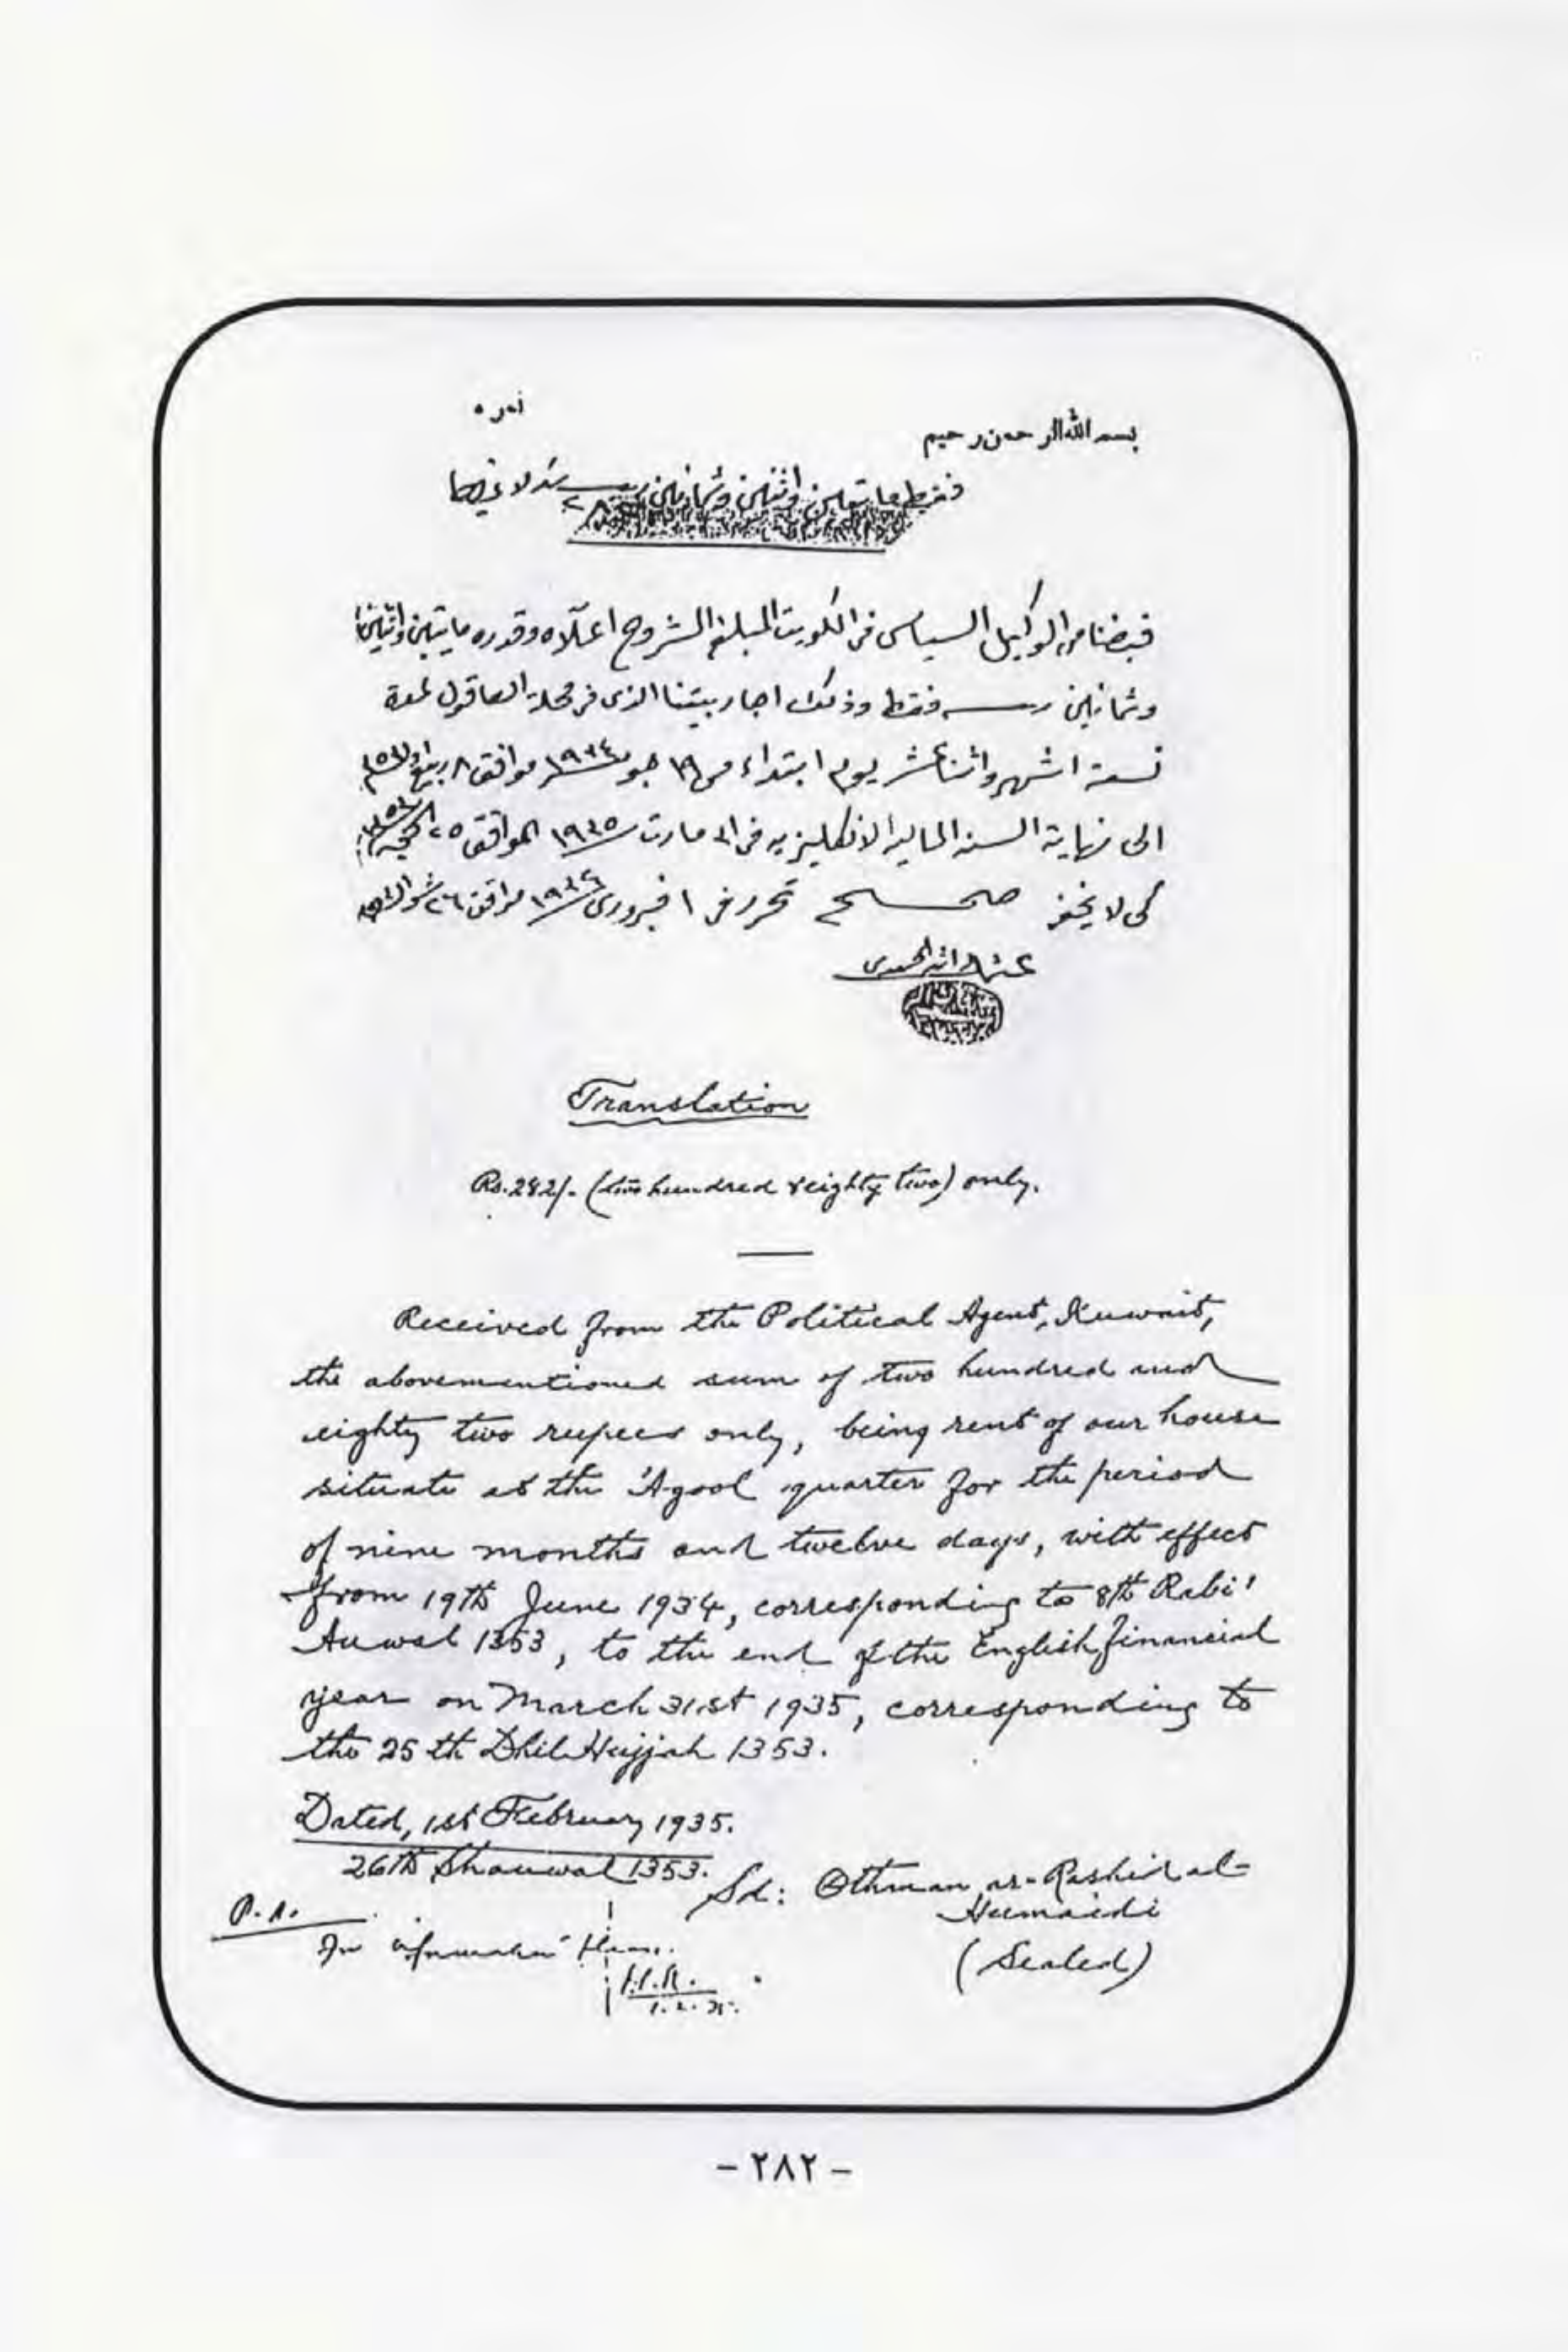 نمره
بسم الله الرحمن رحيم
فقط مايتين واثنين وثمانين ربيه لا غيرها
قبضنا من الوكيل السياسي في الكويت المبلغ المشروح اعلاه وقدره مايتين واثنين
وثمانين ربيه فقط وذلك اجار بيتنا الذي في محلة العاقول لمدة
تسعة اشهر واثناعشر يوم ابتداء من ١٩ جون ١٩٣٤ موافق ٨ ربيع اول ١٣٥٣
الى نهاية السنه الماليه الانكليزيه في ٣١ مارت ١٩٣٥ الموافق ٢٥ الحجه ١٣٥٣
كي لا يخفى صحيح تحرر في ١ فبروري موافق ٢٦ شوال
عثمان الراشد الحميدي
Translation
Rs. 282/- (two hundred & eighty two) only.
Received from the Political Agent, Kuwait,
the abovementioned sum of two hundred and
eighty two rupees only, being rent of our house
situate at the 'Agool quarter for the period
of nine months and twelve days, with effect
from 19th June 1934, corresponding to 8th Rabi'
Auwal 1353, to the end of the English financial
year on March 31st 1935, corresponding to
the 25th Dhil Hujjah 1353.
Dated, 1st February 1935.
26th Shauwal 1353.
Sd: Othman ar-Rashid al-
Humaidi
(Sealed)
P.A.
For information please.
1.2.35.
- ٢٨٢ -